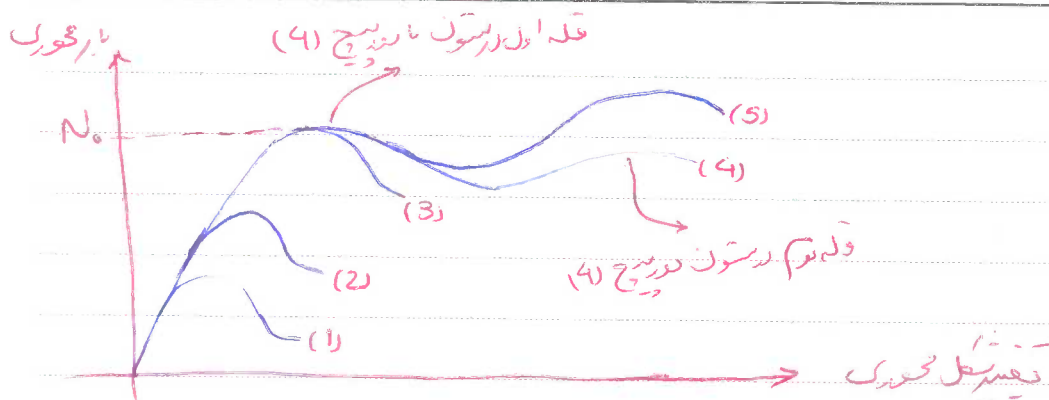 بار محوری
قله اول در ستون با دورپیچ (4)
N₀
(5)
(4)
(3)
قله دوم در ستون دورپیچ (4)
(2)
(1)
تغییر شکل محوری